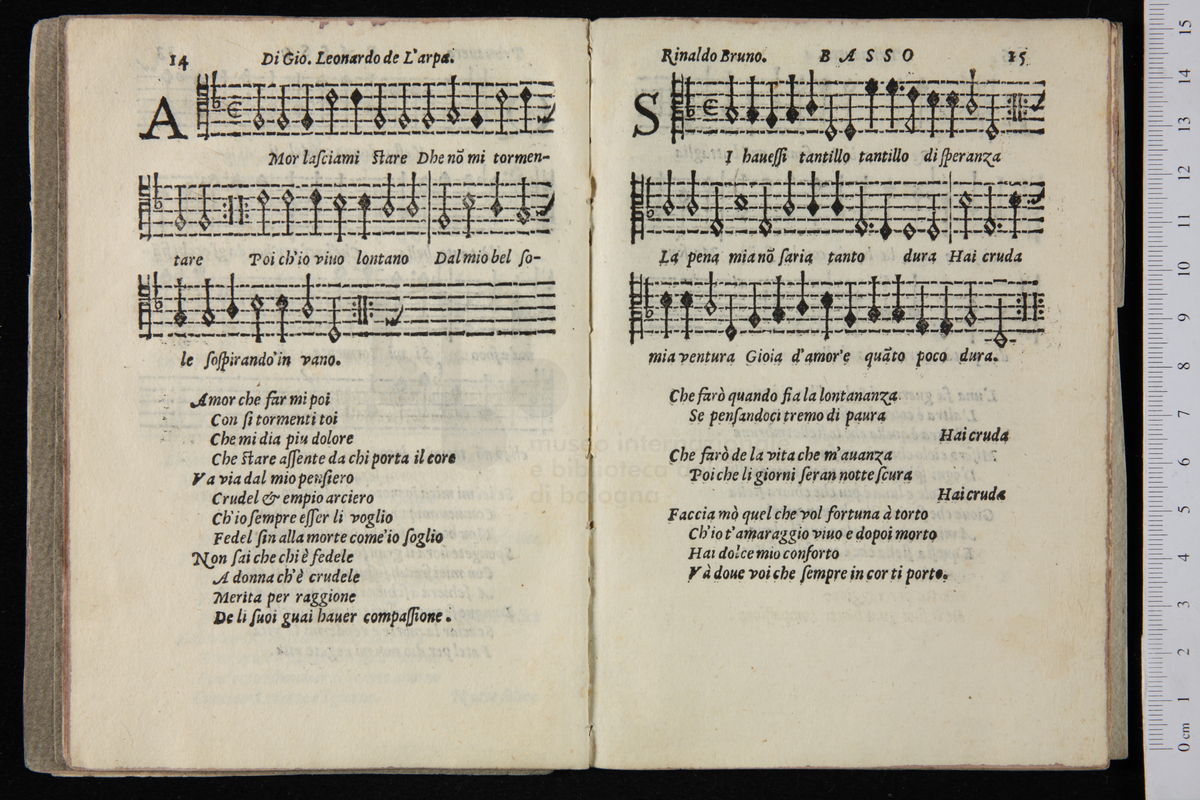 14
Di Gio. Leonardo de L'arpa.
AMor laſciami ſtare Dhe nō mi tormen-
tare Poi ch'io viuo lontano Dal mio bel ſo-
le ſoſpirando'in vano.
Amor che far mi poi
Con ſi tormenti toi
Che mi dia piu dolore
Che ſtare aſſente da chi porta il core
Va via dal mio penſiero
Crudel & empio arciero
Ch'io ſempre eſſer li voglio
Fedel ſin alla morte come'io ſoglio
Non ſai che chi è fedele
A donna ch'è crudele
Merita per raggione
De li ſuoi guai hauer compaſſione.
Rinaldo Bruno. BASSO 15
SI haueſſi tantillo tantillo di ſperanza
La pena mia nō ſaria tanto dura Hai cruda
mia ventura Gioia d'amor'e quāto poco dura.
Che farò quando fia la lontananza
Se penſandoci tremo di paura
Hai cruda
Che farò de la vita che m'auanza
Poi che li giorni ſeran notte ſcura
Hai cruda
Faccia mò quel che vol fortuna à torto
Ch'io t'amaraggio viuo e dopoi morto
Hai dolce mio conforto
Và doue voi che ſempre in cor ti porto.
museo interna
e biblioteca
di bologna
0 cm 1 2 3 4 5 6 7 8 9 10 11 12 13 14 15